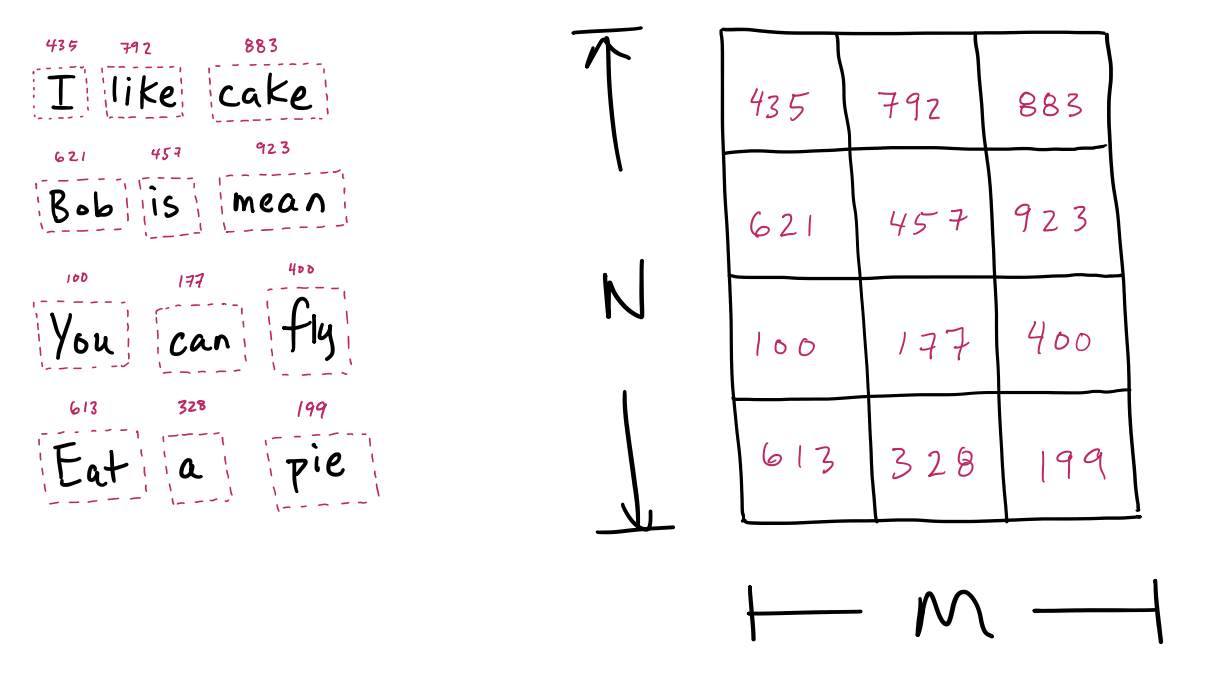 435 792 883
I like cake
621 457 923
Bob is mean
100 177 400
You can fly
613 328 199
Eat a pie
N
435 792 883
621 457 923
100 177 400
613 328 199
M